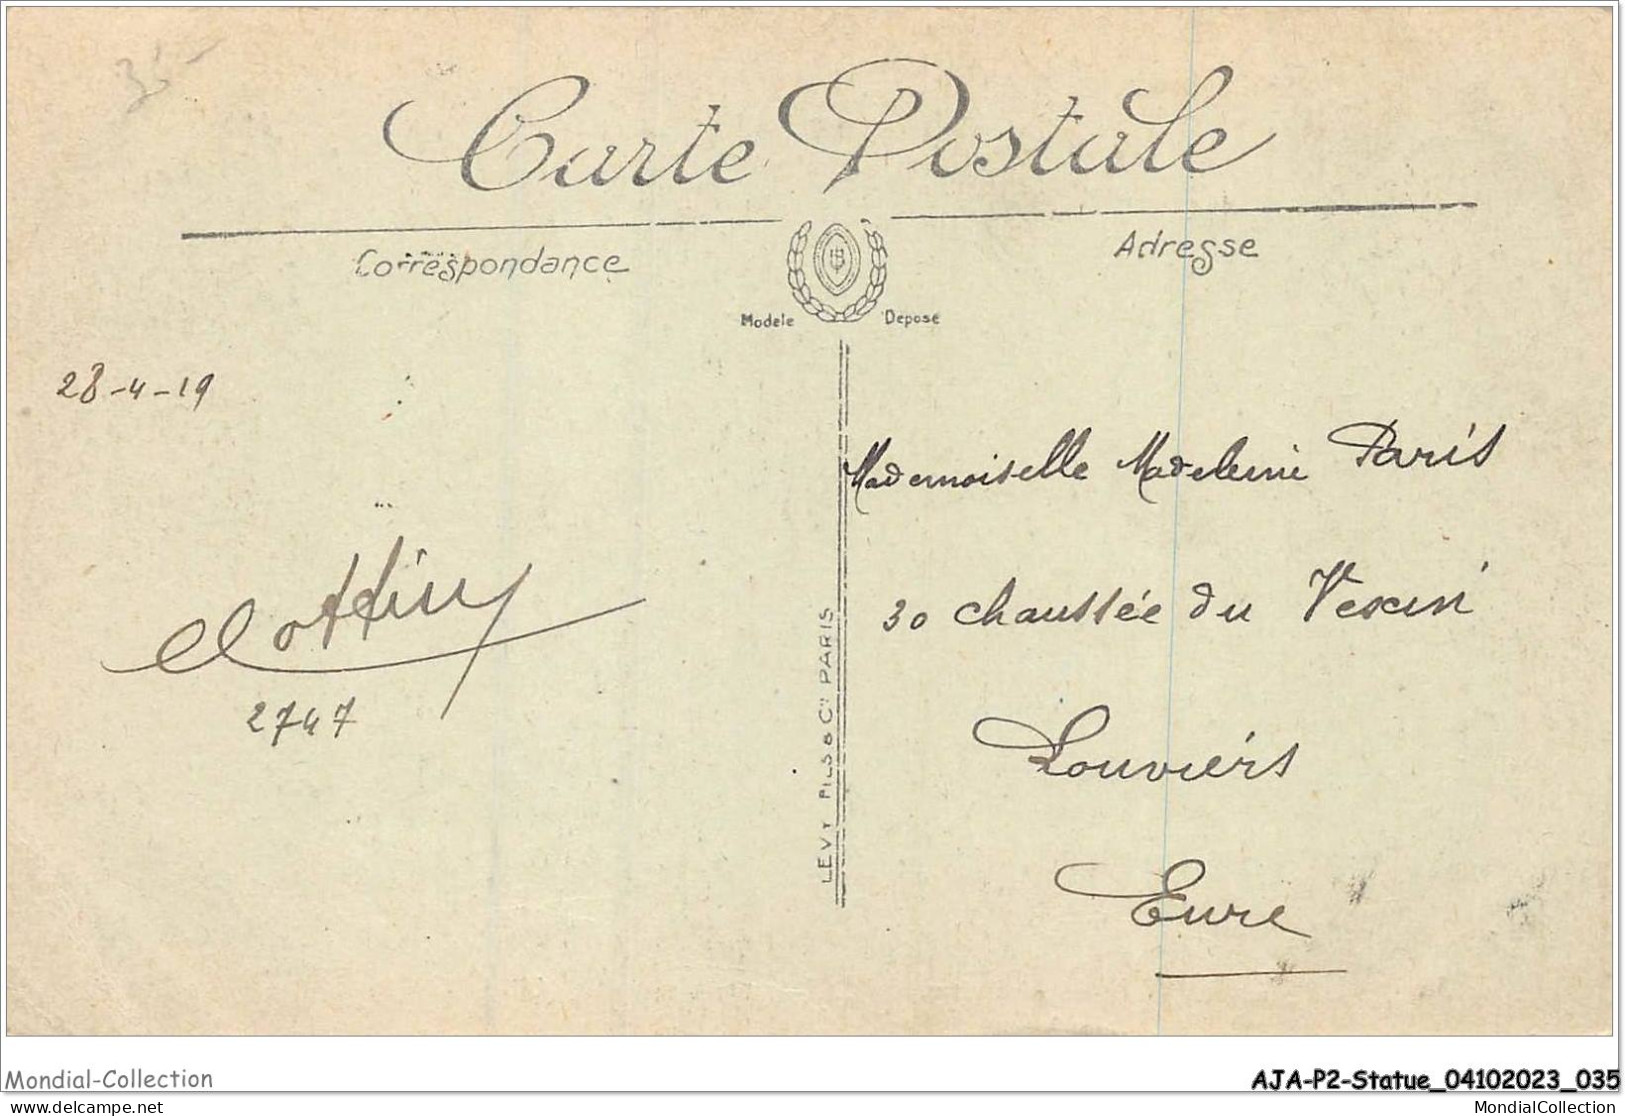 35-
Carte Postale
Correspondance
Adresse
Modele Deposé
28-4-19
Mademoiselle Madeleine Paris
30 chaussée du Vexin
2747
Louviers
Eure
LEVY FILS & Cie PARIS
Mondial-Collection
AJA-P2-Statue_04102023_035
delcampe.net
MondialCollection